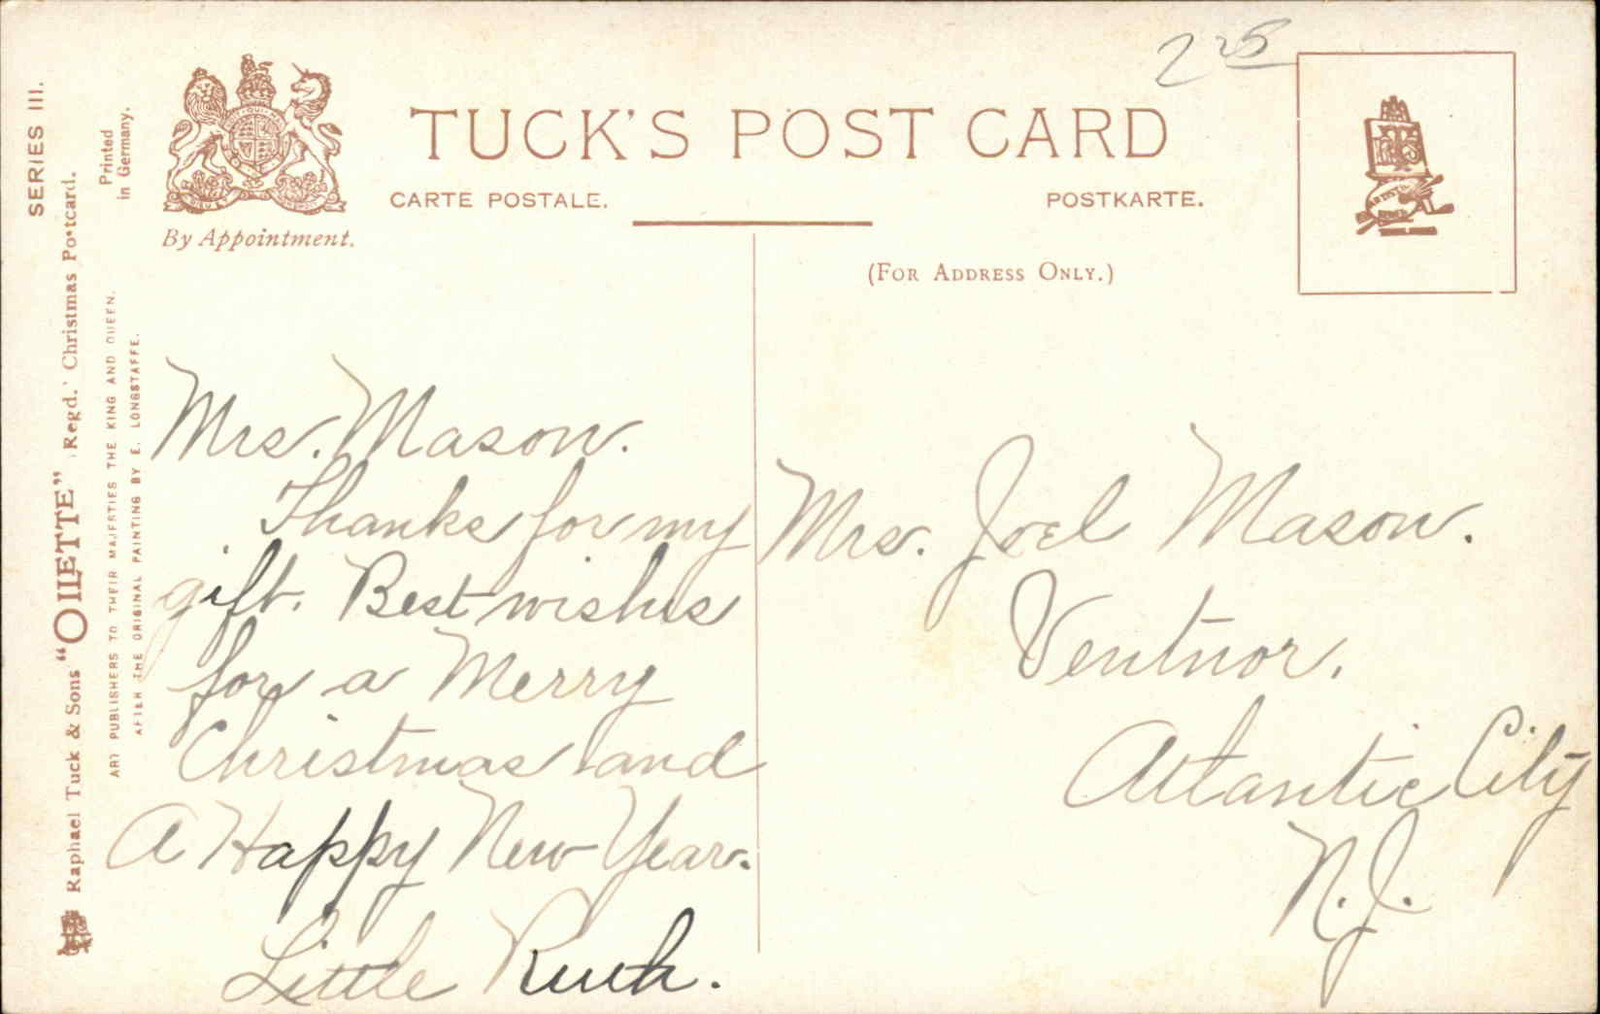 SERIES III.
Raphael Tuck & Sons "OILETTE" Regd. Christmas Postcard.
Printed
in Germany.
ART PUBLISHERS TO THEIR MAJESTIES THE KING AND QUEEN.
AFTER THE ORIGINAL PAINTING BY E. LONGSTAFFE.
By Appointment.
TUCK'S POST CARD
CARTE POSTALE.
POSTKARTE.
(FOR ADDRESS ONLY.)
225
Mrs. Mason.
Thanks for my
gift. Best wishes
for a Merry
Christmas and
A Happy New Year.
Little Ruth.
Mrs. Joel Mason.
Ventnor.
Atlantic City
N.J.